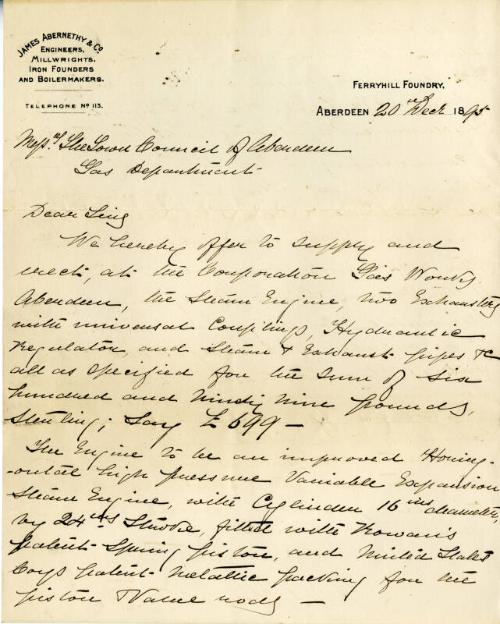 JAMES ABERNETHY & CO
ENGINEERS,
MILLWRIGHTS,
IRON FOUNDERS
AND BOILERMAKERS.
TELEPHONE No 113.
FERRYHILL FOUNDRY,
ABERDEEN 20th Decr 1895
Messrs The Town Council of Aberdeen
Gas Department
Dear Sirs
We hereby offer to supply and
erect, at the Corporation Gas Works
Aberdeen, the Steam Engine, two Exhausters
with universal Couplings, Hydraulic
Regulator, and Steam & Exhaust pipes &c
all as specified for the sum of Six
hundred and ninety nine pounds,
Sterling; Say £699 —
The Engine to be an improved Horiz-
-ontal high pressure Variable Expansion
Steam Engine, with Cylinder 16 ins diameter,
by 24 ins Stroke, fitted with Rowan's
patent Spring piston, and United States
Coys patent metallic packing for the
piston & Valve rods —